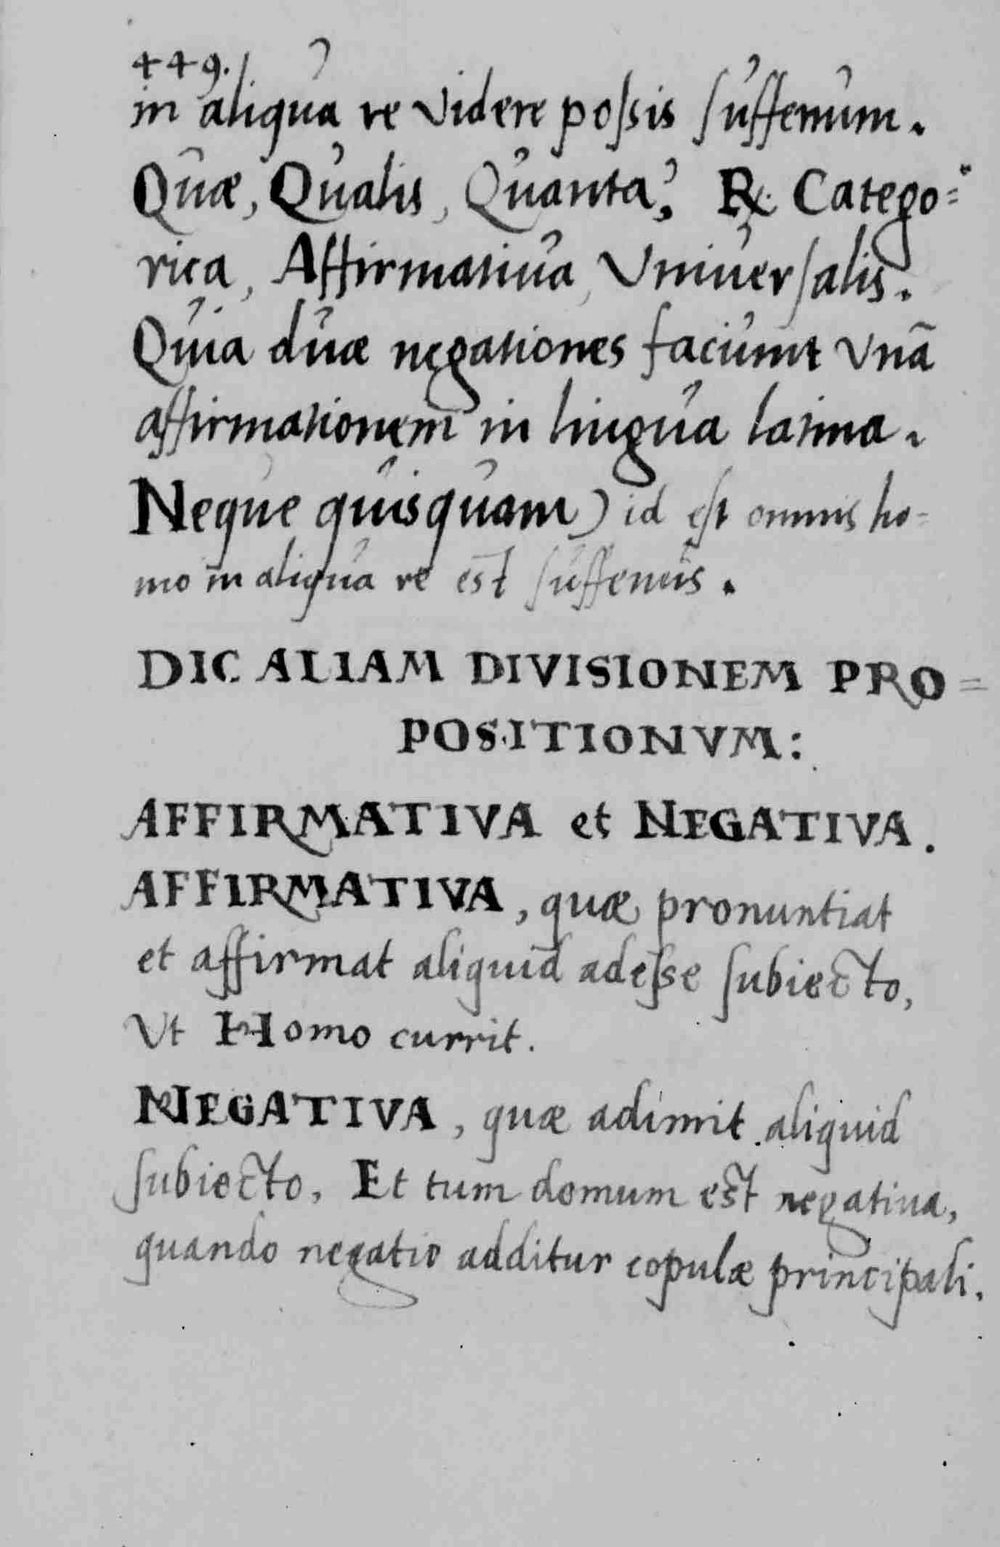 449.
in aliqua re videre poſsis ſuffenum.
Quæ, Qualis, Quanta? ℞. Catego=
rica, Affirmatiua, Vniuerſalis.
Quia duæ negationes faciunt vnā
affirmationem in lingua latina.
Neque quisquam) id eſt omnis ho=
mo in aliqua re est ſuffenus.
DIC ALIAM DIVISIONEM PRO=
POSITIONVM:
AFFIRMATIVA et NEGATIVA.
AFFIRMATIVA, quæ pronuntiat
et affirmat aliquid adeſse ſubiecto,
Vt Homo currit.
NEGATIVA, quæ adimit aliquid
ſubiecto. Et tum domum est negatiua,
quando negatio additur copulæ principali.